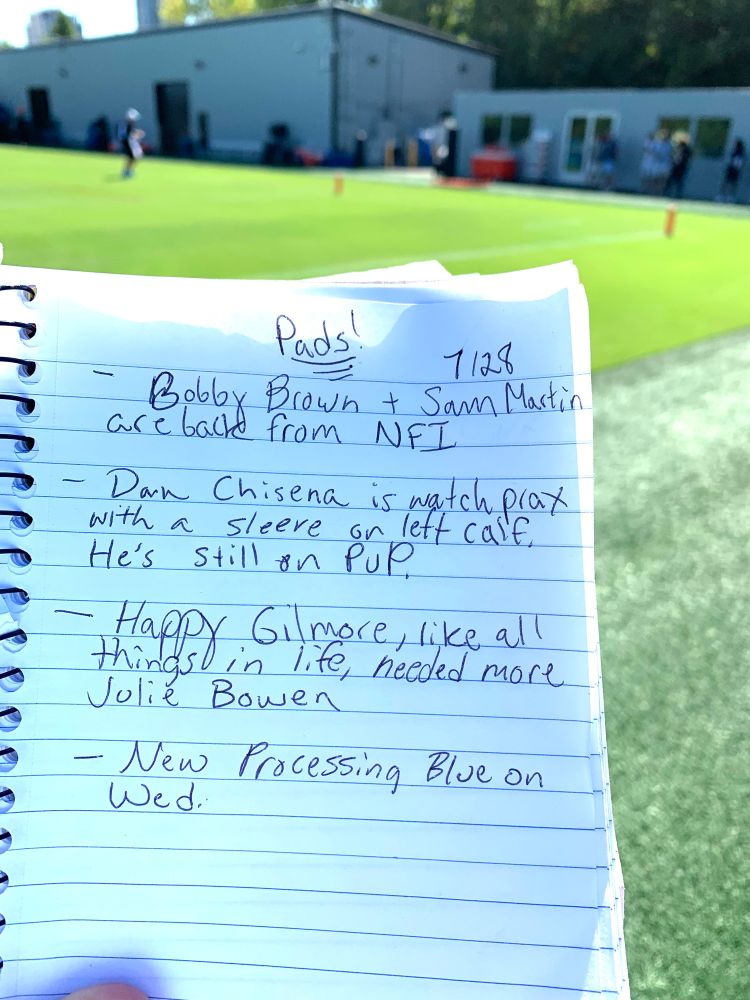 Pads!
7/28
- Bobby Brown + Sam Martin
are back from NFI
- Dan Chisena is watch prax
with a sleeve on left calf.
He's still on PUP.
- Happy Gilmore, like all
things in life, needed more
Julie Bowen
- New Processing Blue on
Wed.